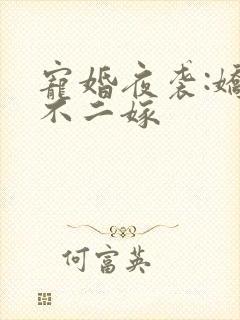 寵婚夜袭:嬌
不二嫁
何富英